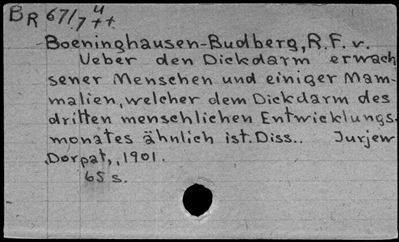 BR 67/7 4 ++.
Boeninghausen-Budberg, R. F. v.
Ueber den Dickdarm erwach
sener Menschen und einiger Mam-
malien, welcher dem Dickdarm des
dritten menschlichen Entwicklungs-
monates ähnlich ist. Diss.. Jurjew
(Dorpat,, 1901.
65 s.